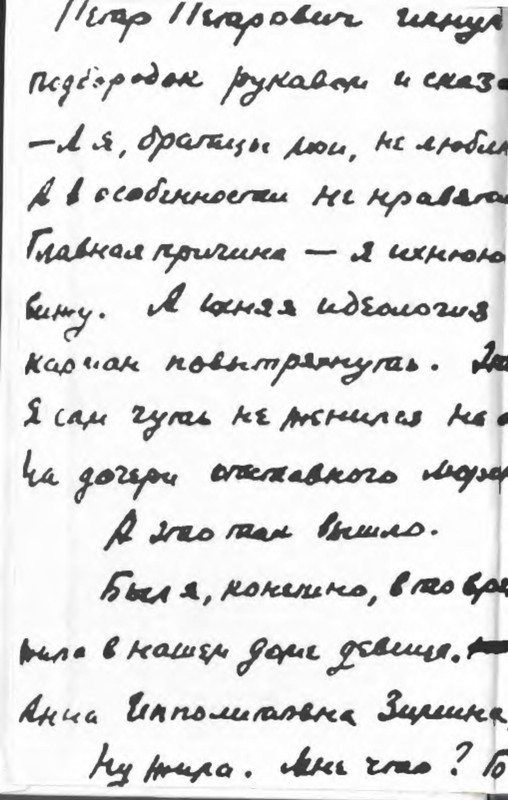 Петр Петрович икнул
подбородок рукавом и сказа
— А я, братцы мои, не люблю
А в особенности не нравятся
Главная причина — я ихнюю
вижу. А ихняя идеология
карман повытряхнуть.
Я сам чуть не женился на
На дочери отставного
А это так вышло.
Был я, конечно, в то вре
жила в нашем доме девица.
Анна Ипполитовна Зирина
Ну жила. Мне что?